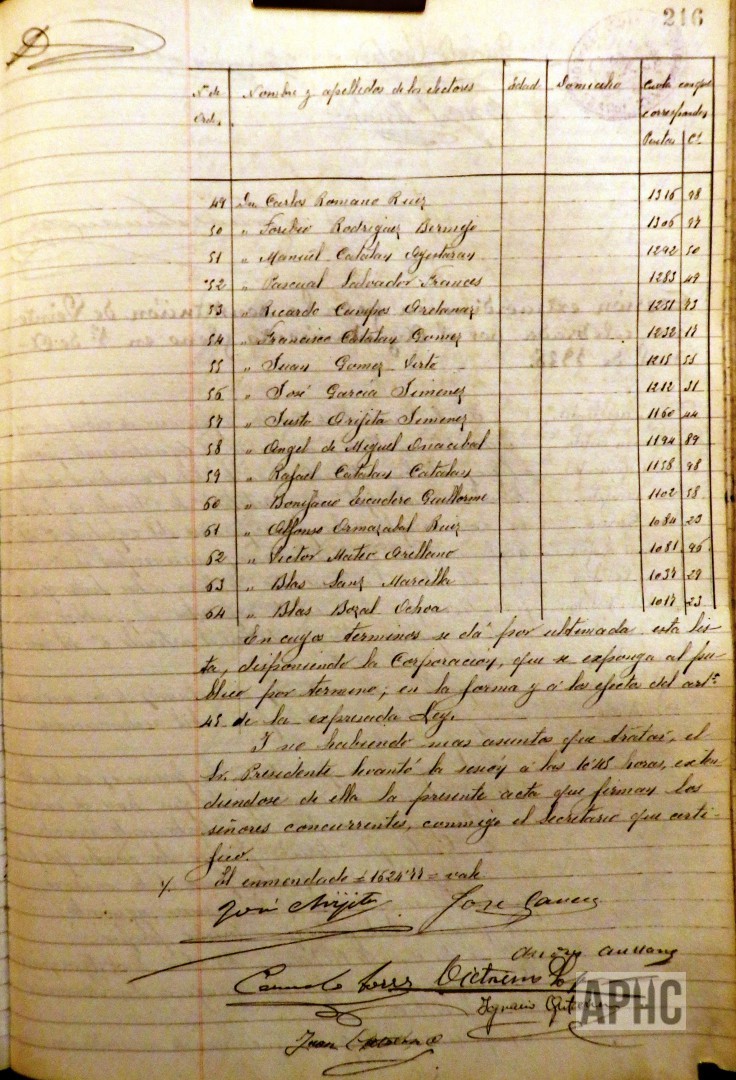 216
Nº de Nombre y apellidos de los electores Edad Domicilio Cuota con que
Ord. corresponden
Pesetas Cs
49 Dn Carlos Romano Ruiz 1316 98
50 " Rodriguez Bermejo 1306 97
51 " Manuel Catalan 1292 50
52 " Pascual Salvador Frances 1283 49
53 " Ricardo Campos Arellanaz 1251 73
54 " Francisco Catalan Gomez 1232 17
55 " Juan Gomez 1215 55
56 " José Garcia Jimenez 1212 31
57 " Justo Arijita Jimenez 1160 44
58 " Angel de Miguel 1194 89
59 " Rafael Catalan Catalan 1138 98
60 " Bonifacio Escudero Guillorme 1102 58
61 " Alfonso Ormazabal Ruiz 1084 23
62 " Victor Mateo Arellano 1081 96
63 " Blas Sanz Marcilla 1037 29
64 " Blas Bozal Ochoa 1017 23
En cuyos terminos se dá por ultimada esta lis-
ta, disponiendo la Corporación, que se exponga al pu-
blico por termino, en la forma y á los efectos del artº
45 de la expresada Ley.
Y no habiendo mas asuntos que tratar, el
Sr. Presidente levantó la sesión á las 16'45 horas, exten-
diendose de ella la presente acta que firman los
señores concurrentes, conmigo el Secretario que certi-
fico.
El enmendado = 1624'77 = vale
José Arijita José Garcia
Arellano
Ignacio
Juan
APHC